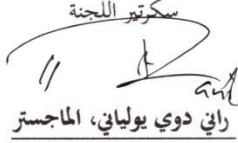 سكرتير اللجنة
راني دوي يولياني، الماجستر